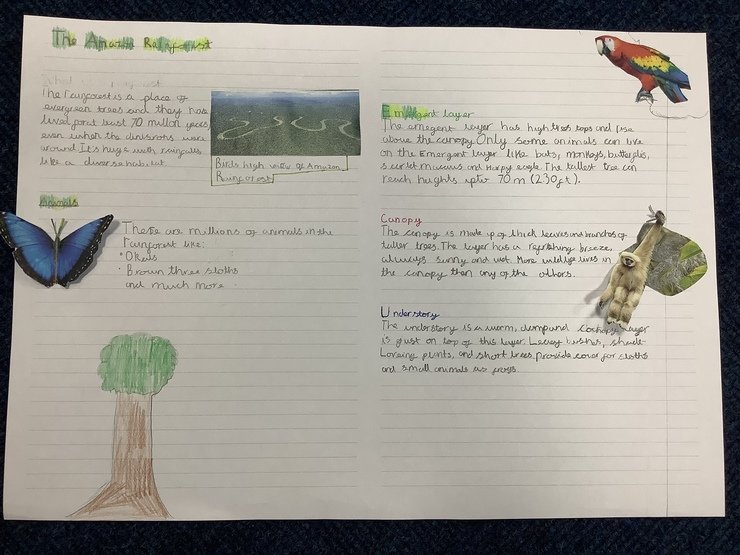 The Amazon Rainforest
The rainforest is a place of
evergreen trees and they have
lived for at least 70 million years,
even when the dinosaurs were
around. It's huge with
like a diverse habitat.
Birds high view of Amazon
Rainforest
Animals
These are millions of animals in the
rainforest like:
• Okapis
• Brown three sloths
and much more.
Emergent layer
The emegent layer has high trees tops and rise
above the canopy. Only some animals can live
on the Emergent layer like bats, monkeys, butterflies,
scarlet macaws and Harpy eagle. The tallest tree can
reach heights upto 70m (230ft).
Canopy
The canopy is made up of thick leaves and branches of
taller trees. The layer has a refreshing breeze,
always sunny and wet. More wildlife lives in
the canopy than any of the others.
Understory
The understory is a warm, damp and layer
is just on top of this layer. Leafy bushes, shade-
Loveing plants, and short trees, provide cover for sloths
and small animals like frogs.